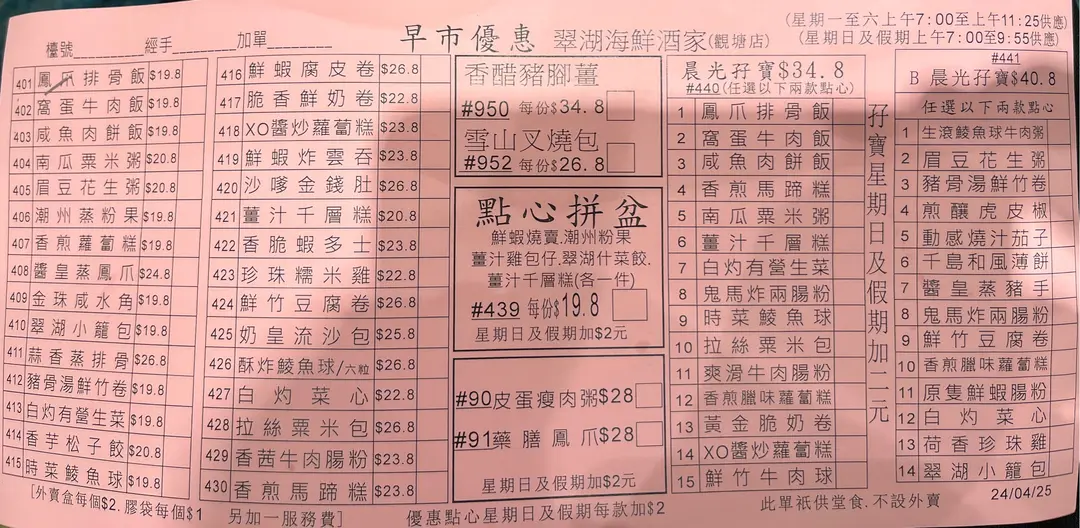 檯號________ 經手________ 加單________
早市優惠 翠湖海鮮酒家(觀塘店)
(星期一至六上午7:00至上午11:25供應)
(星期日及假期上午7:00至9:55供應)
401 鳳爪排骨飯 $19.8
402 窩蛋牛肉飯 $19.8
403 咸魚肉餅飯 $19.8
404 南瓜粟米粥 $20.8
405 眉豆花生粥 $20.8
406 潮州蒸粉果 $19.8
407 香煎蘿蔔糕 $19.8
408 醬皇蒸鳳爪 $24.8
409 金珠咸水角 $19.8
410 翠湖小籠包 $19.8
411 蒜香蒸排骨 $26.8
412 豬骨湯鮮竹卷 $19.8
413 白灼有營生菜 $19.8
414 香芋松子餃 $20.8
415 時菜鯪魚球 $19.8
416 鮮蝦腐皮卷 $26.8
417 脆香鮮奶卷 $22.8
418 XO醬炒蘿蔔糕 $23.8
419 鮮蝦炸雲吞 $23.8
420 沙嗲金錢肚 $26.8
421 薑汁千層糕 $20.8
422 香脆蝦多士 $23.8
423 珍珠糯米雞 $22.8
424 鮮竹豆腐卷 $26.8
425 奶皇流沙包 $25.8
426 酥炸鯪魚球/六粒 $26.8
427 白灼菜心 $22.8
428 拉絲粟米包 $26.8
429 香茜牛肉腸粉 $23.8
430 香煎馬蹄糕 $23.8
香醋豬腳薑
#950 每份$34.8
雪山叉燒包
#952 每份$26.8
點心拼盆
鮮蝦燒賣.潮州粉果
薑汁雞包仔.翠湖什菜餃.
薑汁千層糕(各一件)
#439 每份$19.8
星期日及假期加$2元
#90皮蛋瘦肉粥$28
#91藥膳鳳爪$28
星期日及假期加$2元
晨光孖寶$34.8
#440(任選以下兩款點心)
1 鳳爪排骨飯
2 窩蛋牛肉飯
3 咸魚肉餅飯
4 香煎馬蹄糕
5 南瓜粟米粥
6 薑汁千層糕
7 白灼有營生菜
8 鬼馬炸兩腸粉
9 時菜鯪魚球
10 拉絲粟米包
11 爽滑牛肉腸粉
12 香煎臘味蘿蔔糕
13 黃金脆奶卷
14 XO醬炒蘿蔔糕
15 鮮竹牛肉球
孖寶星期日及假期加二元
#441
B 晨光孖寶$40.8
任選以下兩款點心
1 生滾鯪魚球牛肉粥
2 眉豆花生粥
3 豬骨湯鮮竹卷
4 煎釀虎皮椒
5 動感燒汁茄子
6 千島和風薄餅
7 醬皇蒸豬手
8 鬼馬炸兩腸粉
9 鮮竹豆腐卷
10 香煎臘味蘿蔔糕
11 原隻鮮蝦腸粉
12 白灼菜心
13 荷香珍珠雞
14 翠湖小籠包
24/04/25
[外賣盒每個$2.膠袋每個$1 另加一服務費] 優惠點心星期日及假期每款加$2 此單祇供堂食.不設外賣